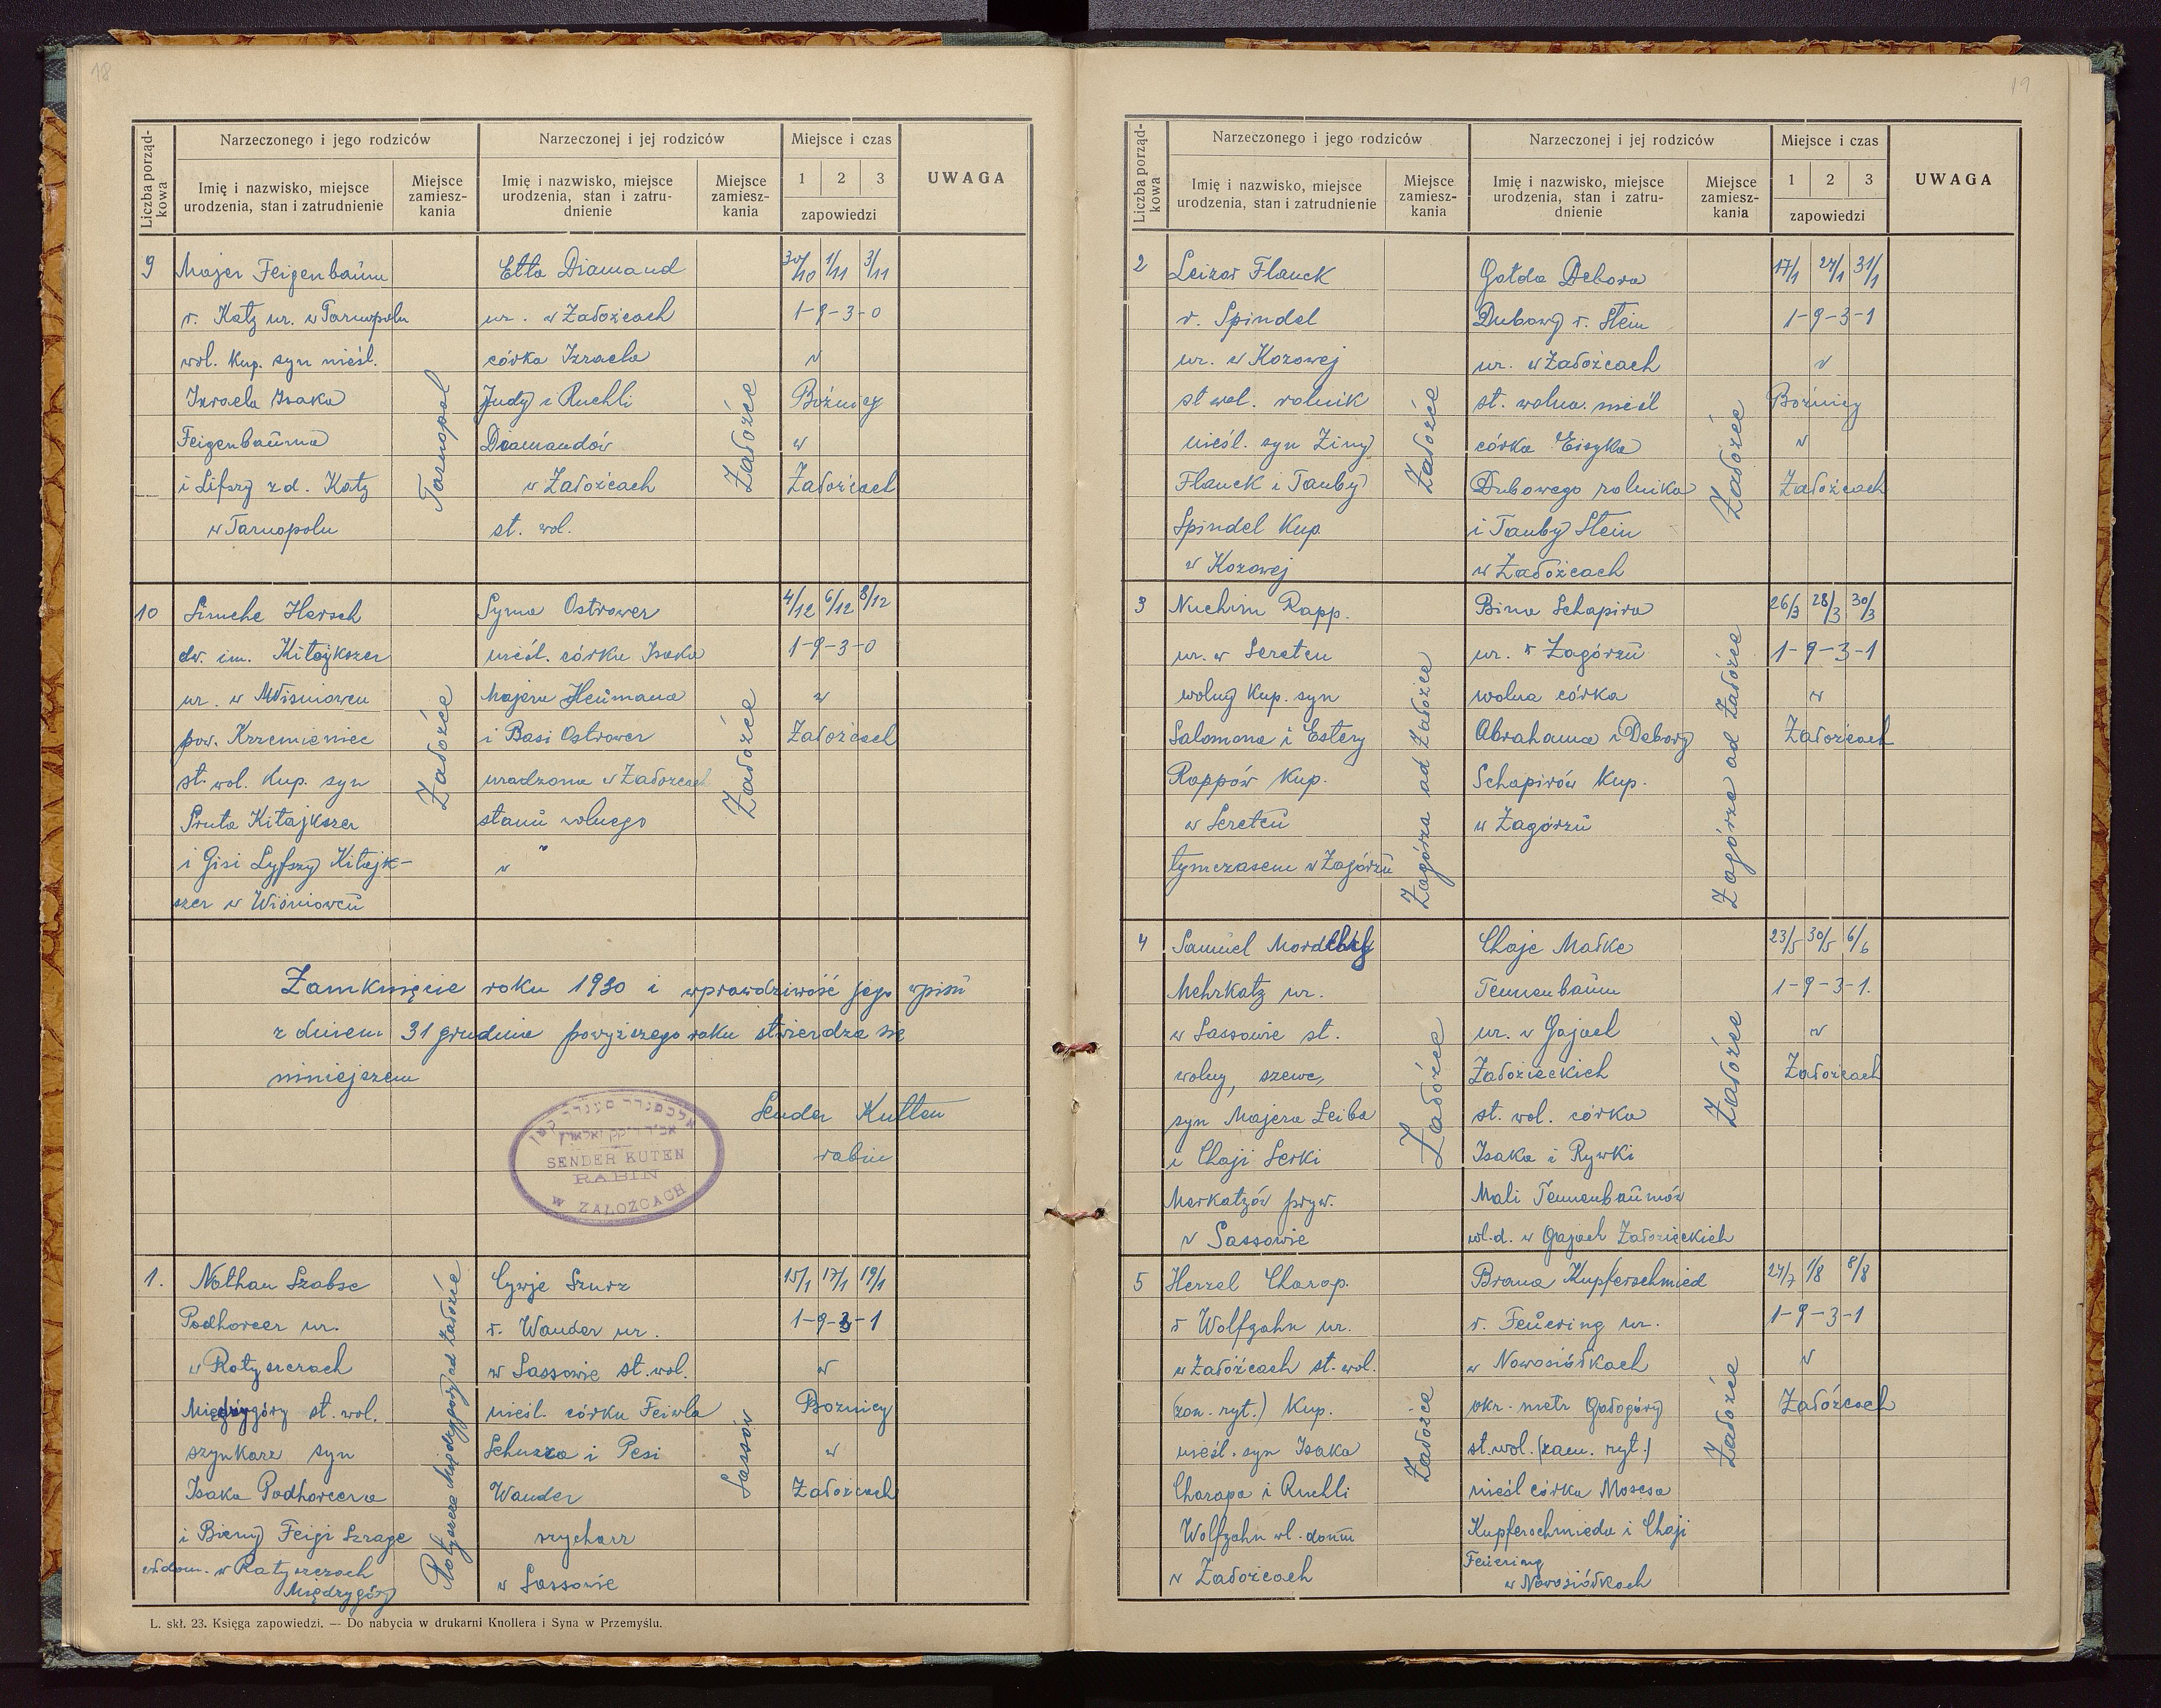 18
Liczba porządkowa
Narzeczonego i jego rodziców
Narzeczonej i jej rodziców
Miejsce i czas
UWAGA
Imię i nazwisko, miejsce urodzenia, stan i zatrudnienie
Miejsce zamieszkania
Imię i nazwisko, miejsce urodzenia, stan i zatrudnienie
Miejsce zamieszkania
1 2 3
zapowiedzi
9
Majer Feigenbaum
r. Katz ur. w Tarnopolu
wol. Kup. syn nieśl.
Izraela Isaka
Feigenbauma
i Lifszy z d. Katz
w Tarnopolu
Tarnopol
Etta Diamand
ur. w Załoźcach
córka Izraela
Judy i Ruchli
Diamandów
w Załoźcach
st. wol.
Załoźce
30/10 1/11 3/11
1-9-3-0
w
Bóźnicy
w
Załoźcach
10
Simche Hersch
dw. im. Kitajkszer
ur. w Wiśniowcu
pow. Krzemieniec
st. wol. Kup. syn
Sruta Kitajkszer
i Gisi Lyfszy Kitajk-
szer w Wiśniowcu
Załoźce
Syma Ostrower
nieśl. córka Isaka
Majera Heumana
i Basi Ostrower
uradzona w Załozcach
stanu wolnego
Załoźce
4/12 6/12 8/12
1-9-3-0
w
Załoźcach
Zamknięcie roku 1930 i wprawdziwość jego wpisu
z dniem 31 grudnia powyższego roku stwierdza się
niniejszem
Sender Kutten
rabin
SENDER KUTEN
RABIN
W ZAŁOŹCACH
1.
Nathan Szabse
Podhorcer ur.
w Ratyszczach
Międzygóry st. wol.
szynkarz syn
Isaka Podhorcera
i Bieny Feigi Szrage
wł. dom. w Ratyszczach
Międzygóry
Ratyszcze Międzygóry ad Załoźce
Cywje Szurz
r. Wander ur.
w Sassowie st. wol.
nieśl. córka Feiwla
Schusza i Pesi
Wander
szycharz
w Sassowie
Sassów
15/1 17/1 19/1
1-9-3-1
w
Boznicy
w
Załoźcach
L. skł. 23. Księga zapowiedzi. — Do nabycia w drukarni Knollera i Syna w Przemyślu.
19
Liczba porządkowa
Narzeczonego i jego rodziców
Narzeczonej i jej rodziców
Miejsce i czas
UWAGA
Imię i nazwisko, miejsce urodzenia, stan i zatrudnienie
Miejsce zamieszkania
Imię i nazwisko, miejsce urodzenia, stan i zatrudnienie
Miejsce zamieszkania
1 2 3
zapowiedzi
2
Leizor Flanck
r. Spindel
ur. w Kozowej
st wol. rolnik
nieśl. syn Ziny
Flanck i Tauby
Spindel Kup
w Kozowej
Załoźce
Gołda Debora
Dubowy r. Stein
ur. w Załoźcach
st. wolna. nieśl
córka Eiszyka
Dubowego rolnika
i Tauby Stein
w Załoźcach
Załoźce
17/1 24/1 31/1
1-9-3-1
w
Bóźnicy
w
Załoźcach
3
Nuchim Rapp.
ur. w Seretcu
wolny Kup. syn
Salomona i Estery
Rappów Kup.
w Seretcu
tymczasem w Zagórzu
Zagórza ad Załoźce
Bina Schapira
ur. w Zagórzu
wolna córka
Abrahama i Debory
Schapirów Kup.
w Zagórzu
Zagórza ad Załoźce
26/3 28/3 30/3
1-9-3-1
w
Załoźcach
4
Samuel
Mehrkatz ur.
w Sassowie st.
wolny, szewc,
syn Majera Leiba
i Chaji Serki
Merkatzów pryw.
w Sassowie
Załoźce
Chaje Małke
Tennenbaum
ur. w Gajach
Załozieckich
st. wol. córka
Isaka i Rywki
Mali Tennenbaumów
wł.d. w Gajach Załozieckich
Załoźce
23/5 30/5 6/6
1-9-3-1.
w
Załoźcach
5
Herzel Charap.
r Wolfzahn ur.
w Załoźcach st. wol.
(zon. ryt.) Kup.
nieśl. syn Isaka
Charapa i Ruchli
Wolfzahn wł. domu
w Załoźcach
Załoźce
Brana Kupferschmied
r. Feuering ur.
w Nowosiółkach
okr. metr Gołogóry
st. wol. (zam. ryt.)
nieśl córka Mosesa
Kupferschmieda i Chaji
Feuering
w Nowosiółkach
Załoźce
24/7 1/8 8/8
1-9-3-1
w
Załóźcach